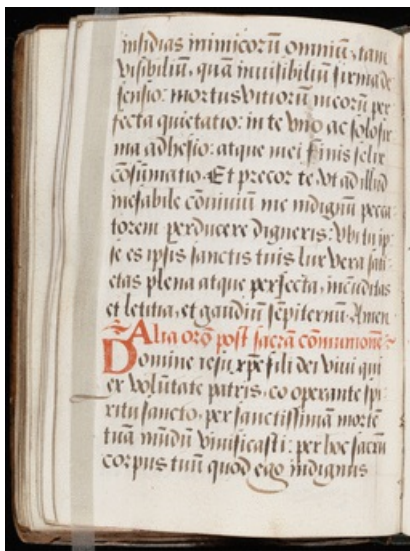 insidias inimicorũ omniũ, tam
visibiliũ, quã invisibiliũ firma de
fensio: motus vitiorũ meorũ per
fecta quietatio: in te vno ac solo fir
ma adhesio: atque mei finis felix
cõsũmatio. Et precor te vt ad illud
inefabile cõviviũ me indignũ pecca
torem perducere digneris: Vbi tu ip
se es ipsis sanctis tuis lux vera sati
etas plena atque perfecta, incũditas
et letitia, et gaudiũ sẽpiternũ. Amen
Alia orõ post sacrã cõmunionẽ
Domine iesu xp̃e fili dei viui qui
ex volũtate patris, co operante spi
ritu sancto, per sanctissimã mortẽ
tuã mũdũ vivificasti: per hoc sacrũ
corpus tuũ quod ego indignus